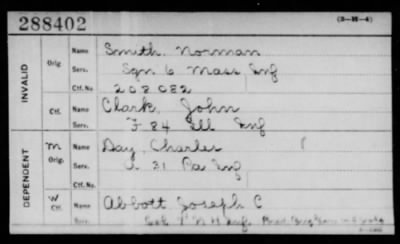 288402
(3-H-4)
INVALID
Orig.
Name Smith, Norman
Serv. Sgn 6 Mass Inf
Ctf. No. 208082
Ctf.
Name Clark, John
Serv. F 84 Ill Inf
DEPENDENT
M
Orig.
Name Day, Charles
Serv. 31 Pa Inf
Ctf. No.
W
Ctf.
Name Abbott Joseph C
Serv. Col 7 N H Inf.